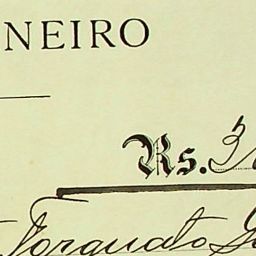 NEIRO
Rs. 3
Torquato